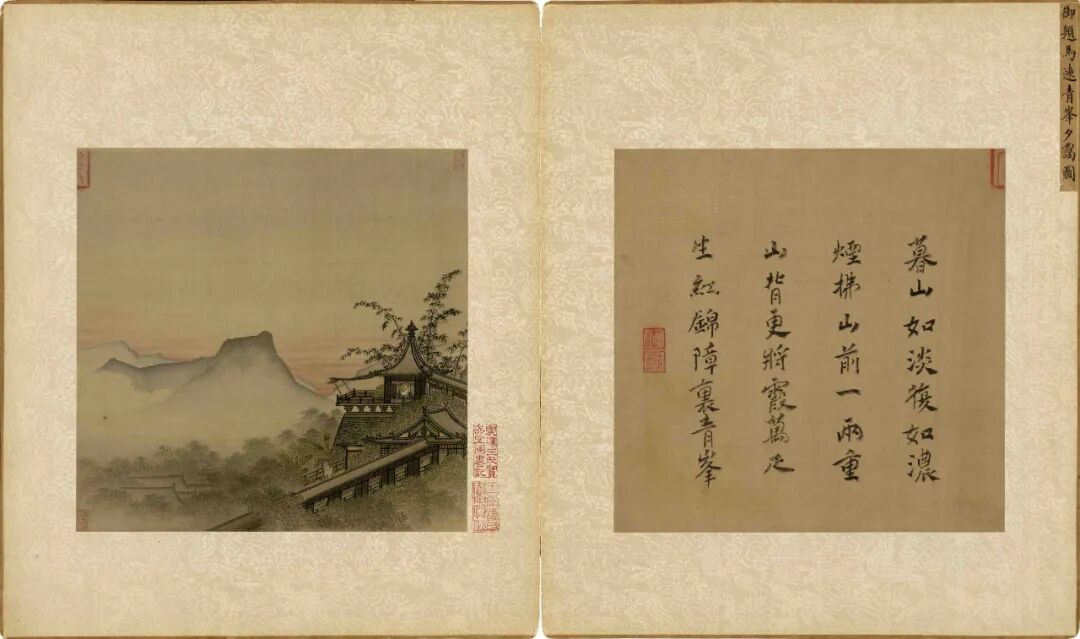 御題馬遠青峯夕靄圖
暮山如淡復如濃
煙拂山前一兩重
山背更將霞萬疋
生紅錦障裏青峯